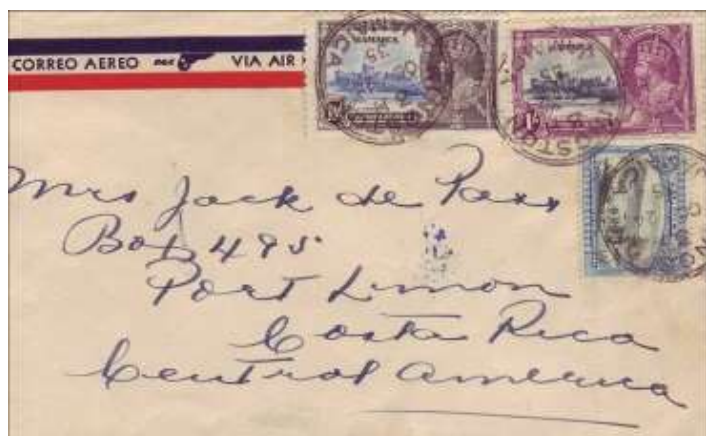 CORREO AEREO VIA AIR
JAMAICA
Mrs Jack de Pass
Box 495
Port Limon
Costa Rica
Central America